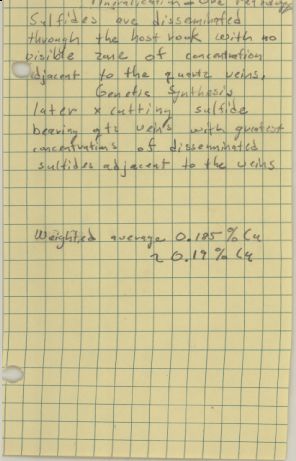 Mineralization - Ore
Sulfides are disseminated
through the host rock with no
visible zone of concentration
adjacent to the quartz veins.
Genetic Synthesis
later x cutting sulfide
bearing qtz veins with greatest
concentrations of disseminated
sulfides adjacent to the veins
Weighted average 0.185 % Cu
~ 0.19 % Cu